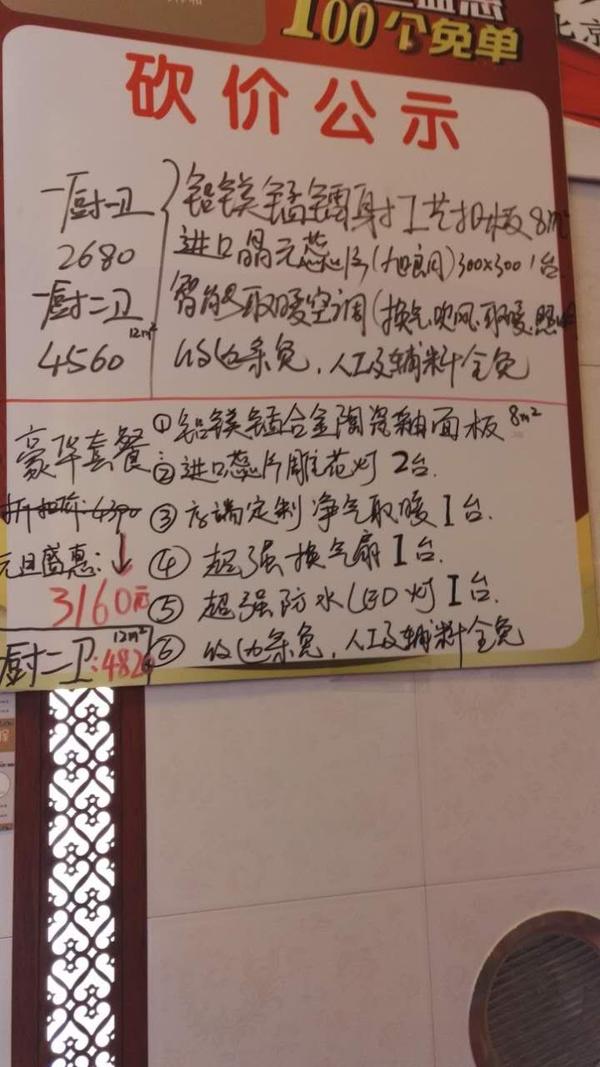 100个免单
北京
砍价公示
一厨一卫
2680
一厨二卫
12m²
4560
铝镁锰镭射工艺扣板8m²
进口晶元蕊片(旭良风)300x300 1台
智能取暖空调(换气,吹风,取暖,照
收边条免,人工及辅料全免
豪华套餐
折扣价:4390
元旦盛惠:↓
3160元
12m²
厨二卫:482
①铝镁锰合金陶瓷釉面板8m²
②进口蕊片雕花灯2台.
③高端定制净气取暖1台.
④超强换气扇1台.
⑤超强防水LED灯1台.
⑥收边条免,人工及辅料全免